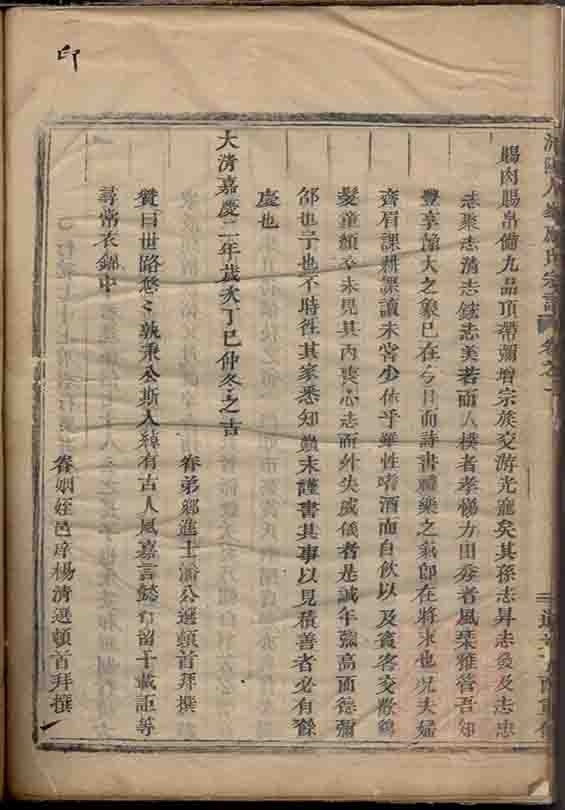 印
賜肉賜帛備九品頂帶彌增宗族交游光寵矣其孫志昇志發及志忠
志聚志清志鋐志美若而人樸者孝梯力田秀者風琹雅管吾知
豐享豫大之象已在今日而詩書禮樂之氣卽在將來也况夫婦
齊眉課耕課讀未嘗少休乎雖性嗜酒而自飲以及賓客交際鶴
髮童顏卒未見其內喪心志而外失威儀者是誠年彌高而德彌
邵也予也不時徃其家悉知顛末謹書其事以見積善者必有餘
慶也
大清嘉慶二年歲次丁巳仲冬之吉
眷弟鄉進士 公選頓首拜撰
贊曰世路悠〻孰秉公斯人綽有古人風嘉言懿行留千載詎等
尋常衣錦中
眷姻姪邑庠楊清選頓首拜撰
氏宗譜 卷之